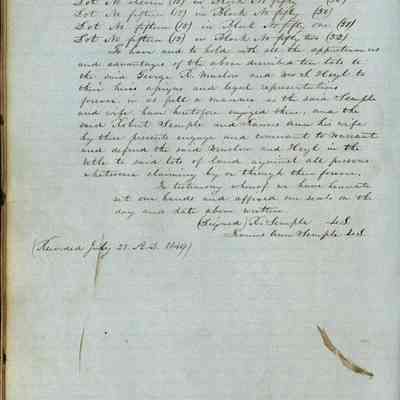 Lot No eleven (11) in Block No fifty (50)
Lot No fifteen (15) in Block No fifty (50)
Lot No fifteen (15) in Block No fifty one (51)
Lot No fifteen (15) in Block No fifty two (52)
To have and to hold with all the appurtenances
and advantages of the above described ten lots to
the said George R. Winslow and Mark Heyl to
their heirs assigns and legal representatives
forever in as full a manner as the said Semple
and wife have heretofore enjoyed them, and the
said Robert Semple and Frances Ann his wife
by these presents engage and covenant to warrant
and defend the said Winslow and Heyl in the
title to said lots of land against all persons
whatsoever claiming by or through them forever.
In testimony whereof we have hereunto
set our hands and affixed our seals on the
day and date above written
(Signed) R. Semple L.S
Frances Ann Semple L.S.
(Recorded July 28. A.D. 1849)